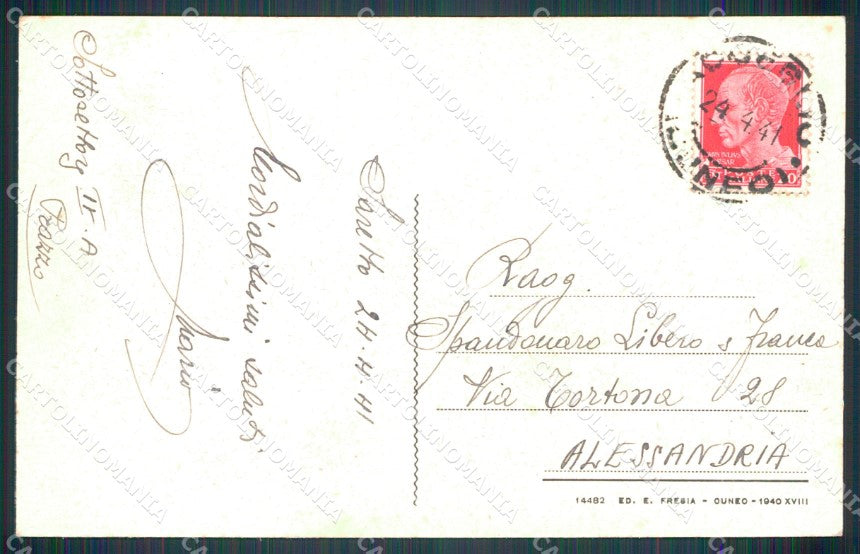 Saretto 24.4.41
Cordialissimi saluti
Mario
IV. A
24.4.41
(CUNEO)
Ragg.
Spandonaro Libero e Franca
Via Tortona 28
ALESSANDRIA
14482 ED. E. FRESIA - CUNEO - 1940 XVIII
CARTOLINOMANIA